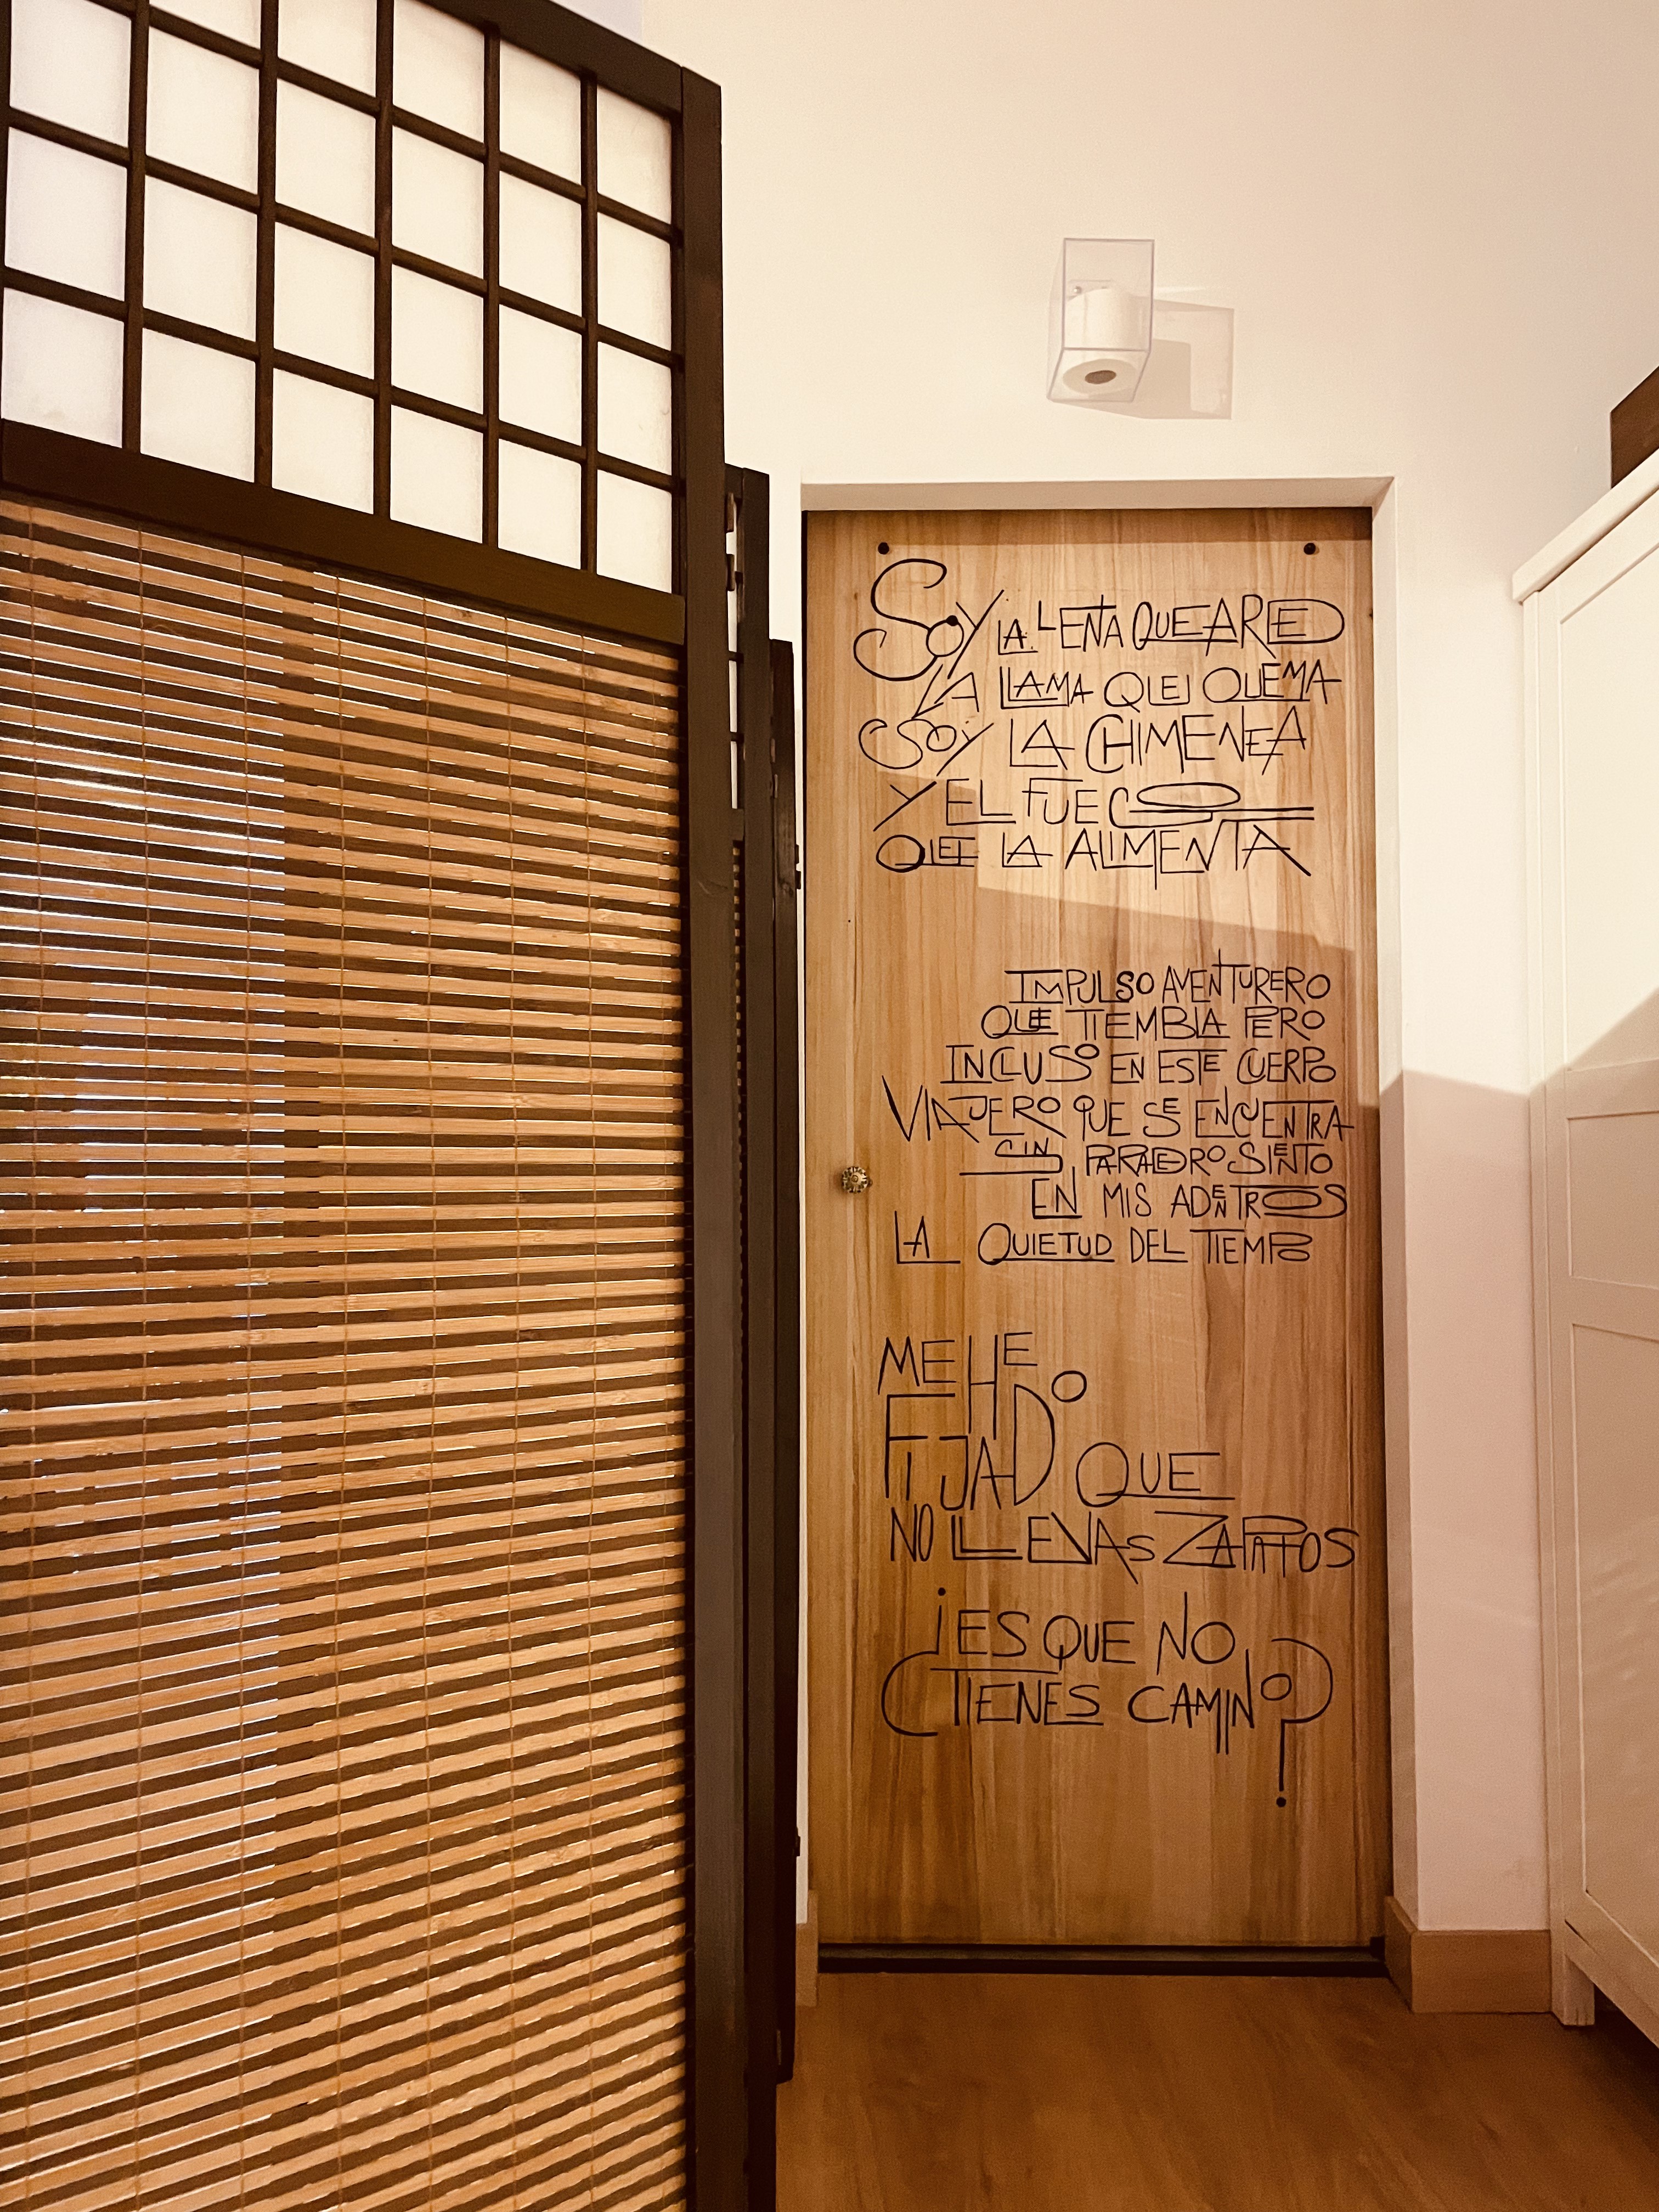 SOY LA LEÑA QUE ARDE
LA LLAMA QUE QUEMA
SOY LA CHIMENEA
Y EL FUEGO
QUE LA ALIMENTA
IMPULSO AVENTURERO
QUE TIEMBLA PERO
INCLUSO EN ESTE CUERPO
VIAJERO QUE SE ENCUENTRA
SIN PARADERO SIENTO
EN MIS ADENTROS
LA QUIETUD DEL TIEMPO
ME HE
FIJADO QUE
NO LLEVAS ZAPATOS
¿ES QUE NO
TIENES CAMINO?